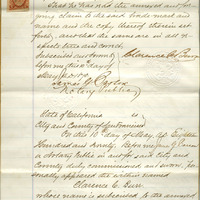 that he has read the annexed and fore
going claim to the said trade mark and
name and the copy thereof therein set
forth, and that the same are in all re
spects true and correct.
Subscribed and sworn to } Clarence C. Burr
before me this day of
May A.D. 1870.
Notary Public

State of California } ss
City and County of San Francisco
On this 10th day of May A.D. Eighteen
Hundred and Seventy. Before me
a Notary Public in and for said City and
County duly commissioned and sworn, per
sonally appeared the within named
Clarence C. Burr
whose name is subscribed to the annexed